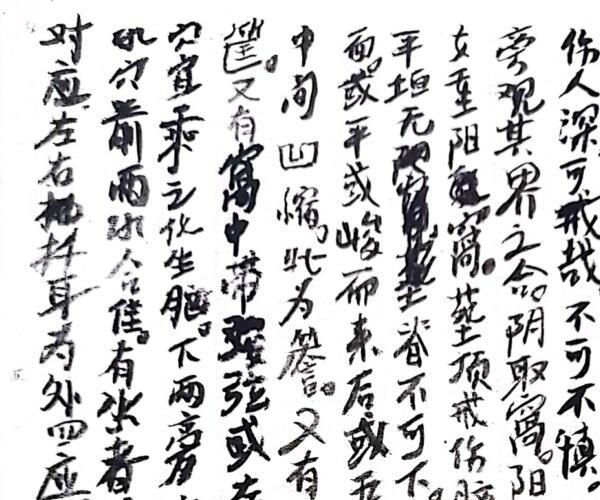 伤人深可戒哉不可不慎。
旁观其界之合。阴取窝。阳
女至阳窝。茔顶戒伤脑
平坦无茔脊不可下
面。或平或峻而来后或五
中间凹缩。此为簷。又有
窝又有窝中带弦或左
穴宜乘之化生脑。下两旁
此穴前两水合佳。有小者
对应左右耳为外四应